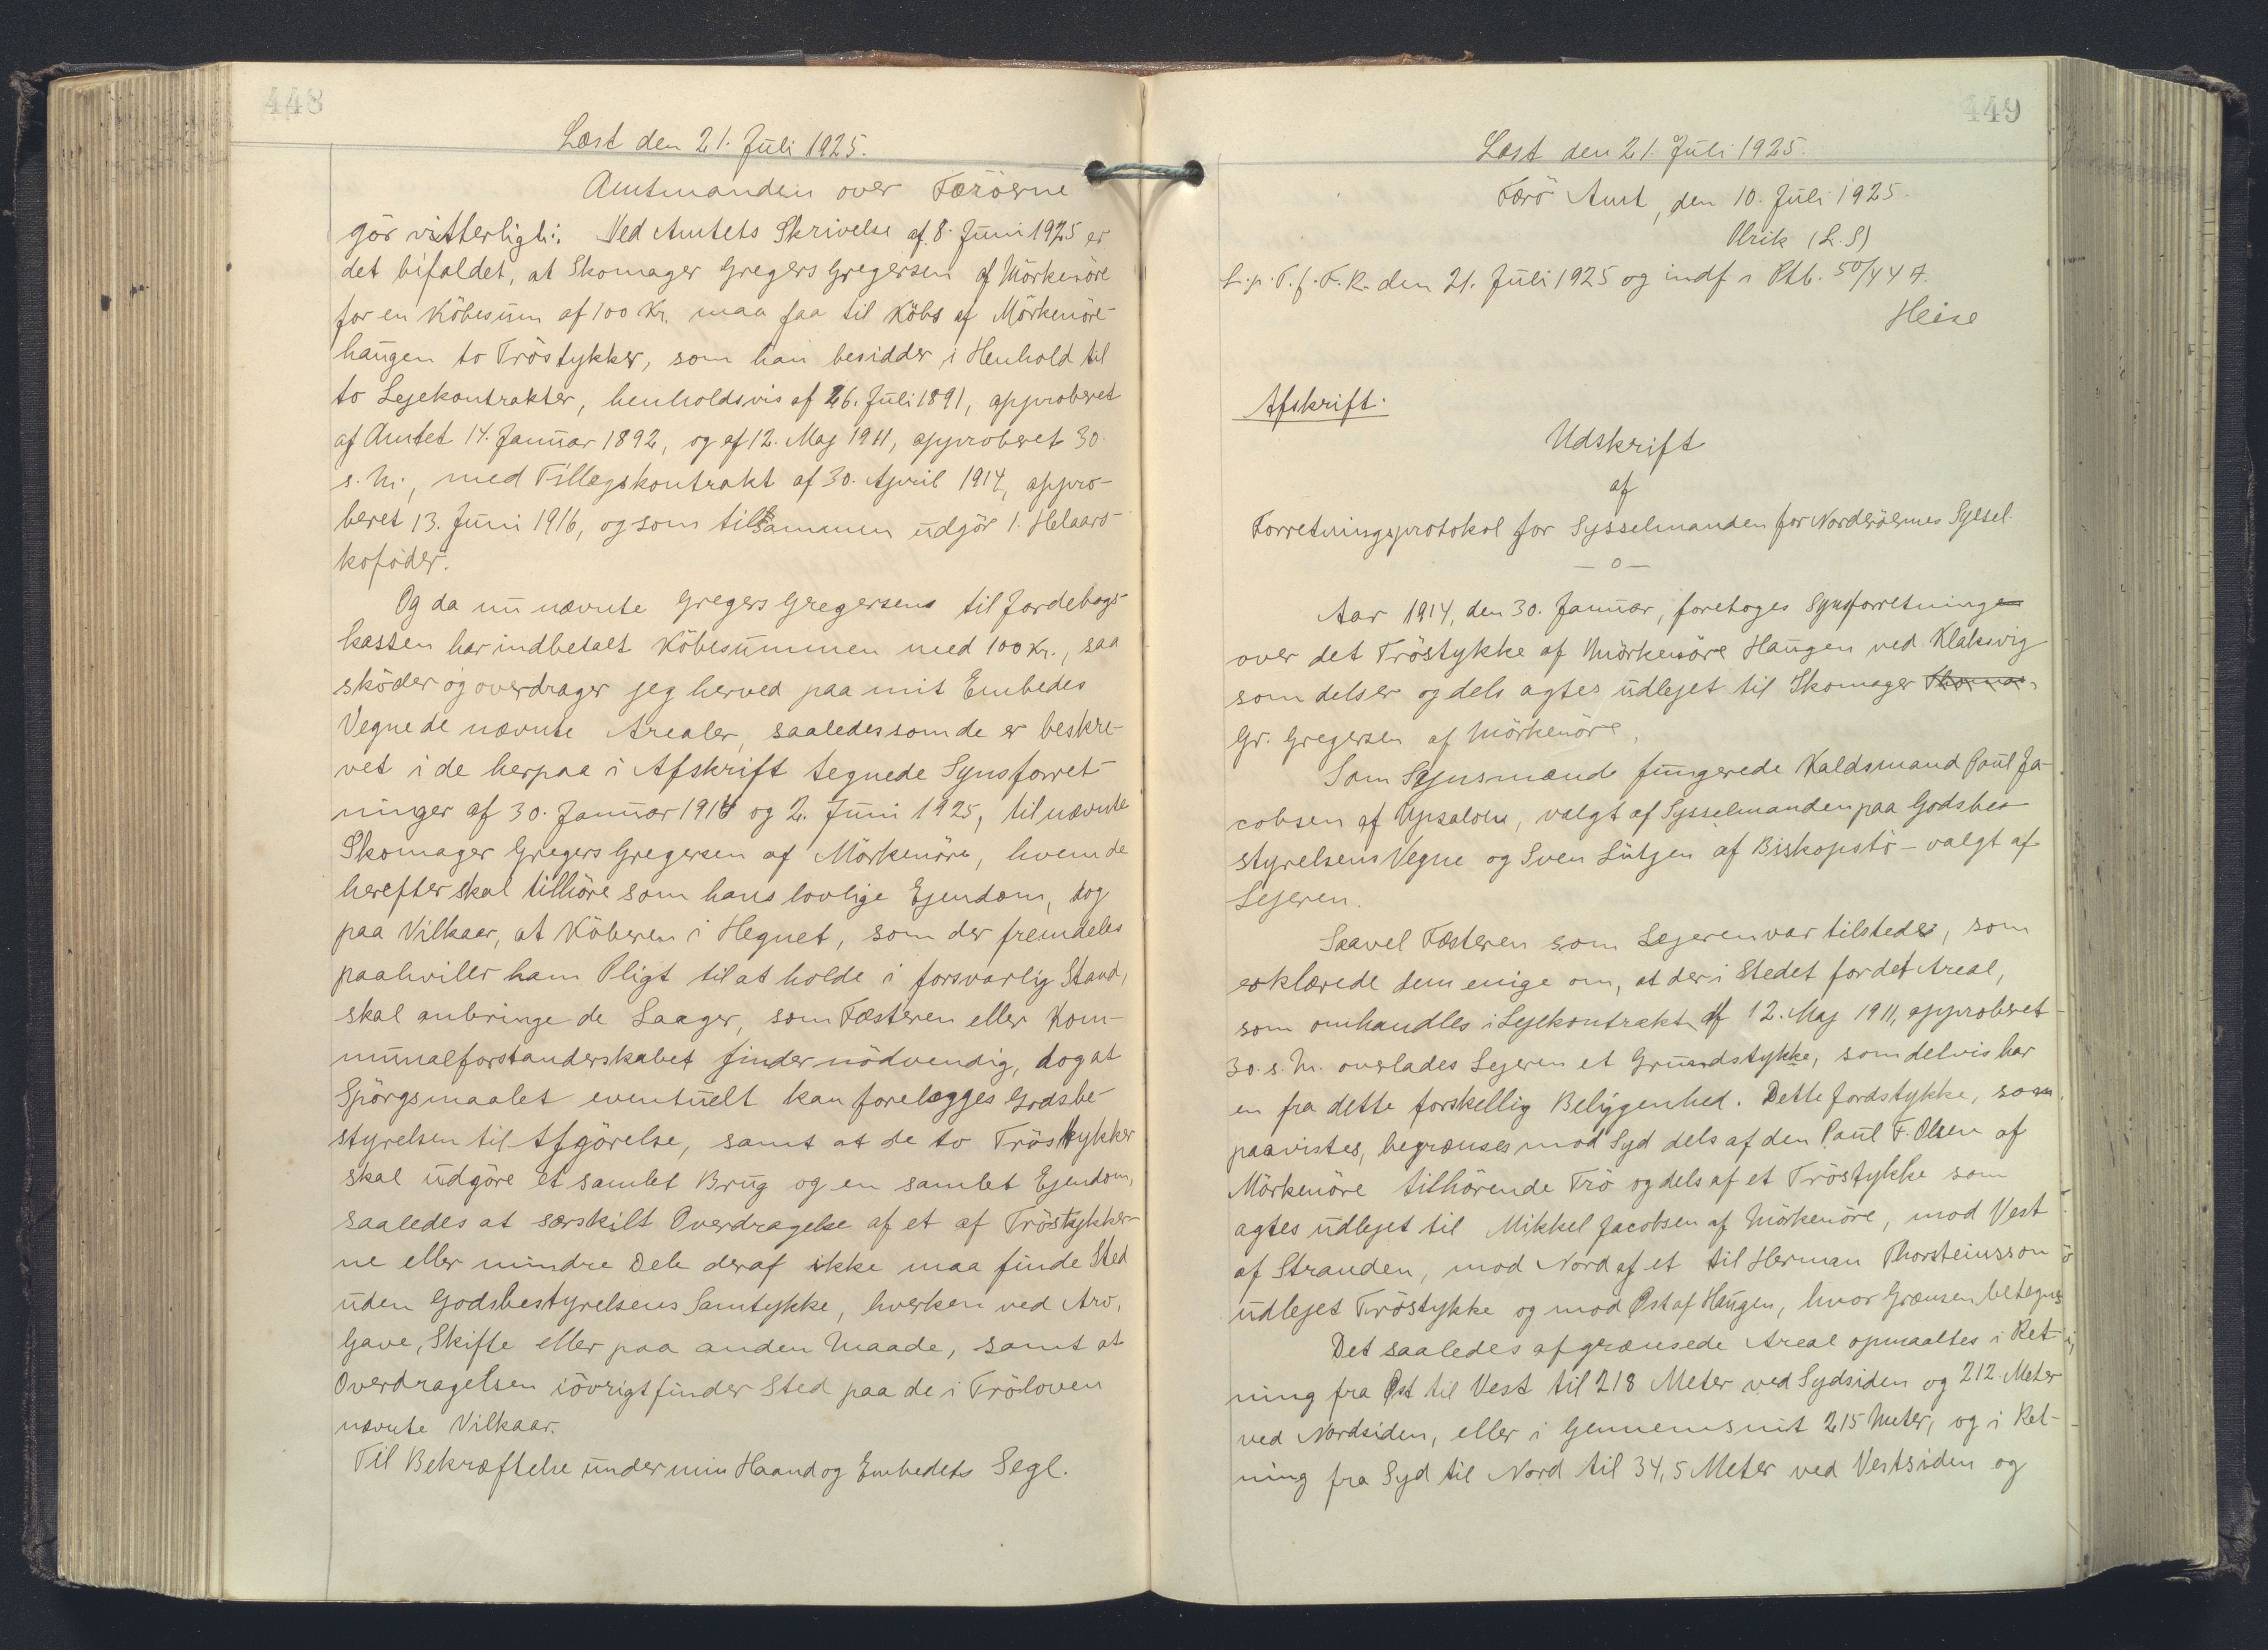 448
Læst den 21. Juli 1925.
Amtmanden over Færöerne
gör vitterligt: Ved Amtets Skrivelse af 8. Juni 1925 er
det bifaldet, at Skomager Gregers Gregersen af Mörkenöre
for en Köbesum af 100 Kr. maa faa til Köbs af Mörkenöre-
haugen to Tröstykker, som han besidder i Henhold til
to Lejekontrakter, henholdsvis af 26. Juli 1891, approberet
af Amtet 14. Januar 1892, og af 12. Maj 1911, approberet 30.
s. M., med Tillægskontrakt af 30. April 1914, appro-
beret 13. Juni 1916, og som tilsammen udgör 1. Helaars-
koföder.
Og da nu nævnte Gregers Gregersens til Jordebogs-
kassen har indbetalt Köbesummen med 100 Kr., saa
sköder og overdrager jeg herved paa mit Embedes
Vegne de nævnte Arealer, saaledes som de er beskre-
vet i de herpaa i Afskrift tegnede Synsforret-
ninger af 30. Januar 1914 og 2. Juni 1925, til nævnte
Skomager Gregers Gregersen af Mörkenöre, hvem de
herefter skal tilhöre som hans lovlige Ejendom, dog
paa Vilkaar, at Köberen i Hegnet, som der fremdeles
paahviler ham Pligt til at holde i forsvarlig Stand,
skal anbringe de Laager, som Fæsteren eller Kom-
munalforstanderskabet finder nödvendig, dog at
Spörgsmaalet eventuelt kan forelægges Godsbe-
styrelsen til Afgörelse, samt at de to Tröstykker
skal udgöre et samlet Brug og en samlet Ejendom,
saaledes at særskilt Overdragelse af et af Tröstykker-
ne eller mindre Dele deraf ikke maa finde Sted
uden Godsbestyrelsens Samtykke, hverken ved Arv,
Gave, Skifte eller paa anden Maade, samt at
Overdragelsen iövrigt finder Sted paa de i Tröloven
nævnte Vilkaar.
Til Bekræftelse under min Haand og Embedets Segl.
449
Læst den 21. Juli 1925.
Færö Amt, den 10. Juli 1925.
Ulrik (L.S)
L.p.T.f.F.R. den 21. Juli 1925 og indf i Ptb. 50/447.
Heise
Afskrift.
Udskrift
af
Forretningsprotokol for Sysselmanden for Norderöernes Syssel.
— o —
Aar 1914, den 30. Januar, foretoges Synsforretningen
over det Tröstykke af Mörkenöre Haugen ved Klaksvig
som dels er og dels agtes udlejet til Skomager Thomas
Gr. Gregersen af Mörkenöre.
Som Synsmænd fungerede Kaldsmand Poul Ja-
cobsen af Upsalom, valgt af Sysselmanden paa Godsbe-
styrelsens Vegne og Sven Lützen af Biskopstö - valgt af
Lejeren.
Saavel Fæsteren som Lejeren var tilstede, som
erklærede dem enige om, at der i Stedet for det Areal,
som omhandles i Lejekontrakt af 12. Maj 1911, approberet
30. s. M. overlades Lejeren et Grundstykke, som delvis har
en fra dette forskellig Beliggenhed. Dette Jordstykke, som
paavistes, begrænses mod Syd dels af den Poul F. Olsen af
Mörkenöre tilhörende Trö og dels af et Tröstykke som
agtes udlejet til Mikkel Jacobsen af Mörkenöre, mod Vest
af Stranden, mod Nord af et til Herman Thorsteinsson
udlejet Tröstykke og mod Øst af Haugen, hvor Grænsen betegnes
Det saaledes afgrænsede Areal opmaaltes i Ret-
ning fra Øst til Vest til 218 Meter ved Sydsiden og 212 Meter
ved Nordsiden, eller i Gennemsnit 215 Meter, og i Ret-
ning fra Syd til Nord til 34,5 Meter ved Vestsiden og